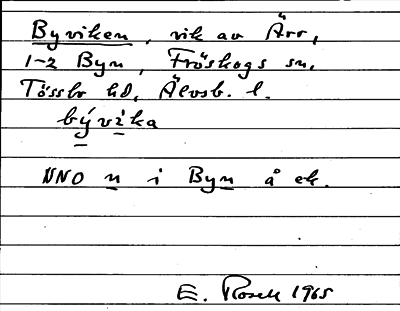 Byviken, vik av Ärr,
1-2 Byn, Fröskogs sn,
Tössbo hd, Älvsb. l.
bývika
NNO n i Byn å ek.
E. Rosell 1965